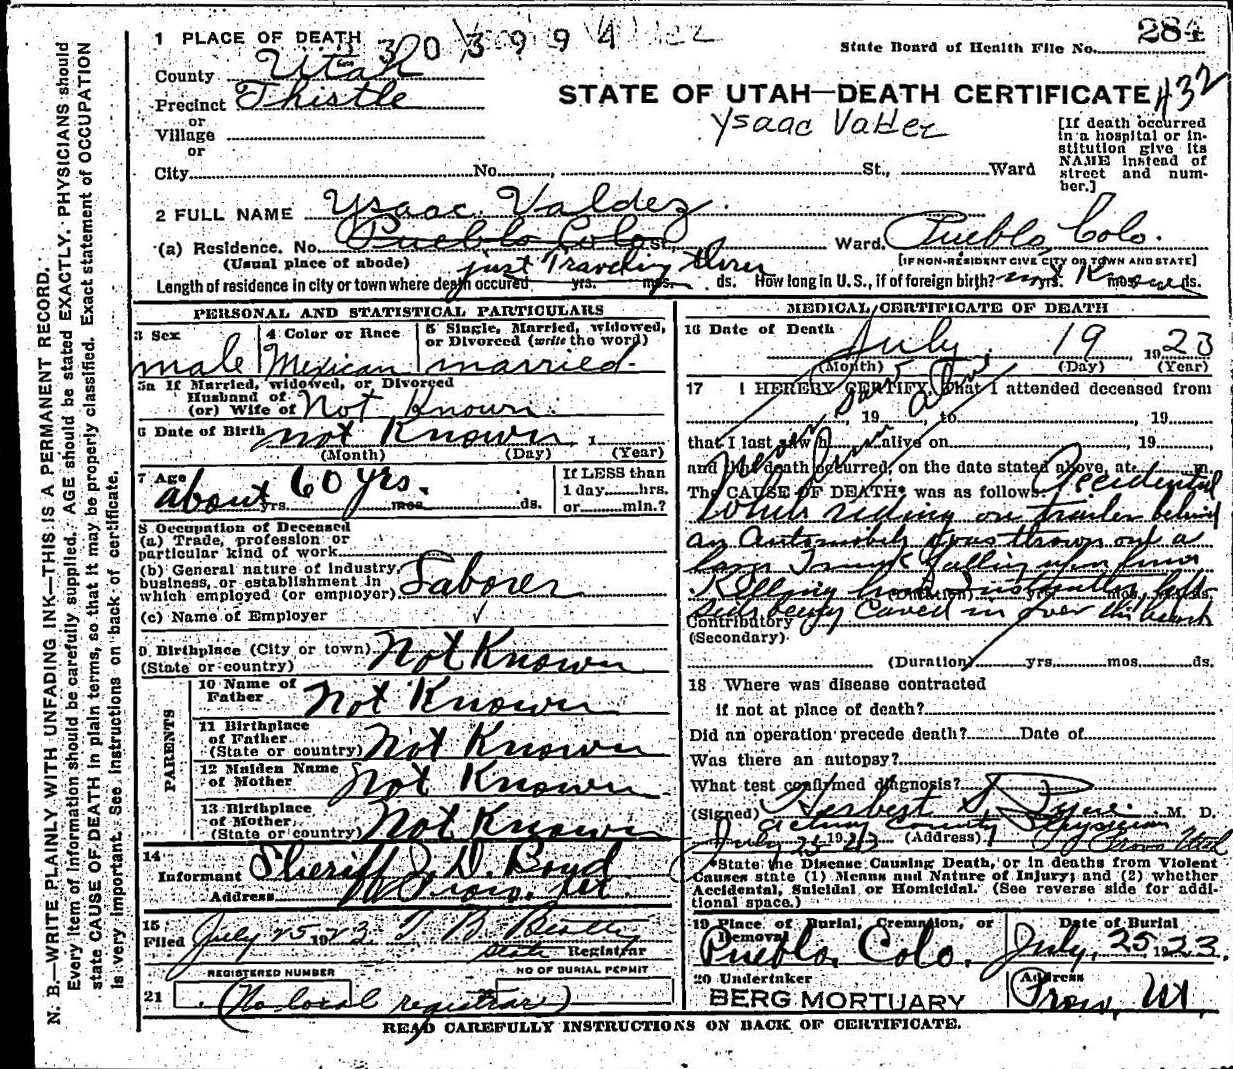 284
State Board of Health File No.
1 PLACE OF DEATH
3 0 3 9 9 4
County Utah
Precinct Thistle
or
Village
or
City No. St., Ward
STATE OF UTAH—DEATH CERTIFICATE 432
Ysaac Valdez
[If death occurred in a hospital or institution give its NAME instead of street and number.]
2 FULL NAME Ysaac Valdez
(a) Residence. No. Pueblo Colo St., Ward. Pueblo, Colo.
(Usual place of abode) [IF NON-RESIDENT GIVE CITY OR TOWN AND STATE]
just Traveling thru
Length of residence in city or town where death occured yrs. mos. ds. How long in U.S., if of foreign birth? not Known yrs. mos. ds.
PERSONAL AND STATISTICAL PARTICULARS
3 Sex male
4 Color or Race Mexican
5 Single, Married, widowed, or Divorced (write the word) married.
5a If Married, widowed, or Divorced
Husband of
(or) Wife of Not Known.
6 Date of Birth not Known, 1
(Month) (Day) (Year)
7 Age about 60 yrs. mos. ds.
If LESS than 1 day hrs. or min.?
8 Occupation of Deceased
(a) Trade, profession or particular kind of work
(b) General nature of industry, business, or establishment in which employed (or employer) Laborer
(c) Name of Employer
9 Birthplace (City or town) (State or country) Not Known
PARENTS
10 Name of Father Not Known
11 Birthplace of Father (State or country) Not Known
12 Maiden Name of Mother Not Known
13 Birthplace of Mother (State or country) Not Known
14 Informant Sheriff J. D. Boyd
Address Provo, Ut.
15 Filed July 25 1923 State Registrar
REGISTERED NUMBER NO OF BURIAL PERMIT
21 (No local registrar)
MEDICAL CERTIFICATE OF DEATH
16 Date of Death July 19, 1923
(Month) (Day) (Year)
17 I HEREBY CERTIFY, That I attended deceased from
, 19 , to , 19
that I last saw h alive on , 19
and that death occurred, on the date stated above, at m.
Never saw him alive
The CAUSE OF DEATH* was as follows: Accidental
While riding on trailer behind
an Automobile was thrown out a
large Trunk falling upon him
Killing him instantly, left
side being caved in over the heart
(Duration) yrs. mos. ds.
Contributory
(Secondary)
(Duration) yrs. mos. ds.
18 Where was disease contracted
if not at place of death?
Did an operation precede death? Date of
Was there an autopsy?
What test confirmed diagnosis?
(Signed) Herbert S. Pyne M. D.
Acting County Physician
July 25 1923 (Address) Provo Utah
*State the Disease Causing Death, or in deaths from Violent Causes state (1) Means and Nature of Injury; and (2) whether Accidental, Suicidal or Homicidal. (See reverse side for additional space.)
19 Place of Burial, Cremation, or Removal Pueblo, Colo.
Date of Burial July, 25, 1923.
20 Undertaker BERG MORTUARY
Address Provo, Ut.
READ CAREFULLY INSTRUCTIONS ON BACK OF CERTIFICATE.
N. B.—WRITE PLAINLY WITH UNFADING INK—THIS IS A PERMANENT RECORD.
Every item of information should be carefully supplied. AGE should be stated EXACTLY. PHYSICIANS should
state CAUSE OF DEATH in plain terms, so that it may be properly classified. Exact statement of OCCUPATION
is very important. See instructions on back of certificate.